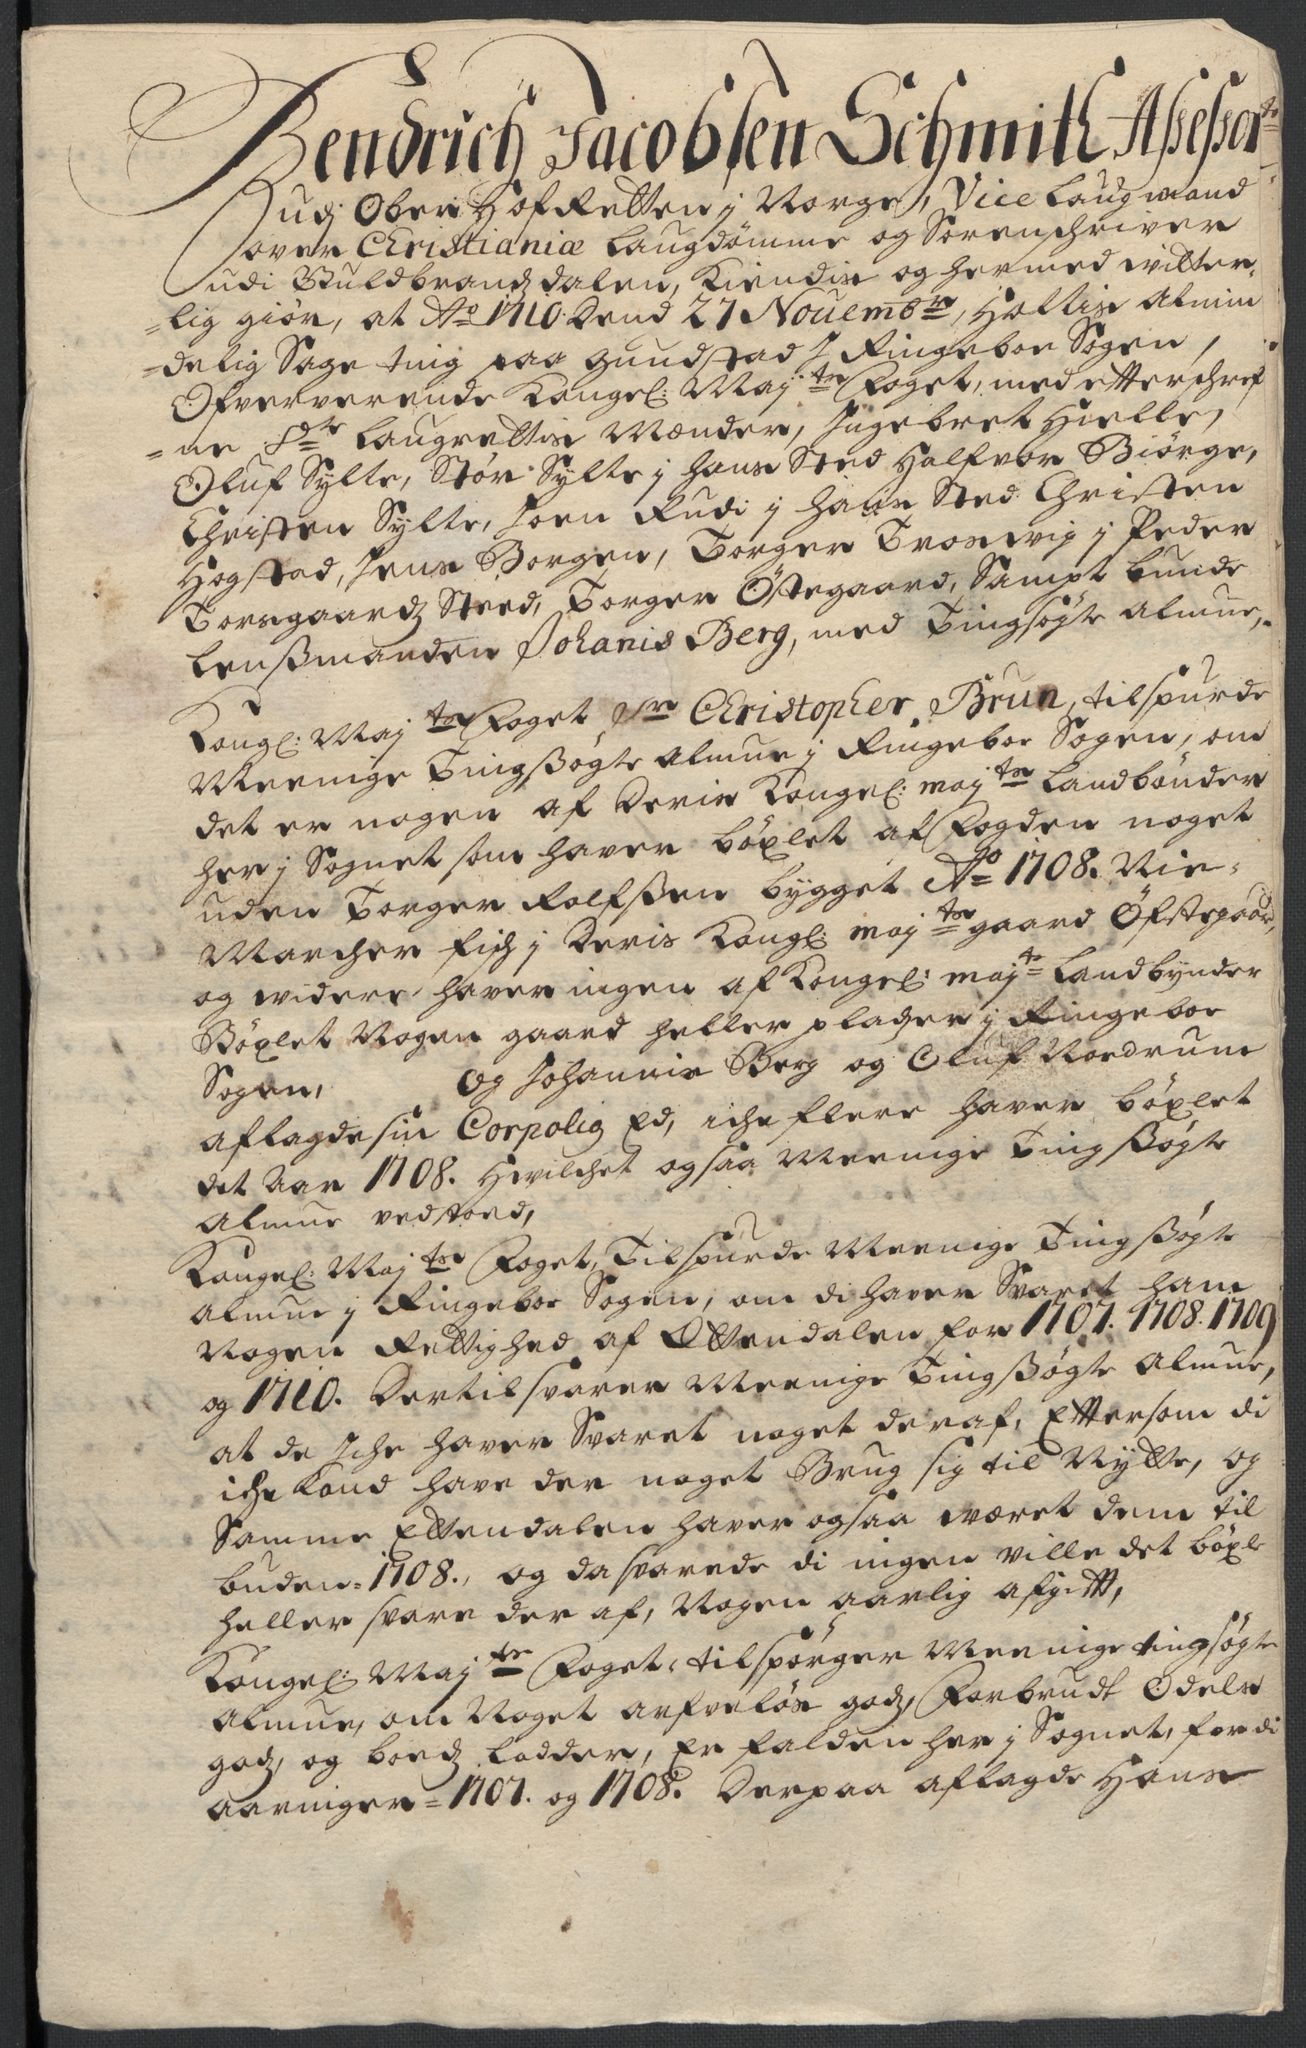 Hendrich Jacobsen Schmith Assessor
Udj Ober Hof Retten j Norge, Vice Laugmand
over Christianiæ Laugdømme og Sorenschriver
udi Guldbrandzdalen, Kiendis og hermed vitter-
-lig giør, at Ao 1710 Dend 27 Nouembr, Holtis Almin
-delig Sage ting paa Gundstad j Ringeboe Sogen,
Ofververende Kongel: May.ts Foget, med etterschref
-ne Laugrettis Mænder, Ingebret Hielle,
Oluf Sylte, Stør Sylte j hans Sted Halfvor Biørge,
Christen Sylte, Joen Rudi j hans Sted Christen
Hogstad, Jens Borgen, Torger Trosvig j Peder
Forregaardz Sted, Torger Øfregaard, Sampt bunde
Lensßmanden Johanis Berg, med Tingsøgte Almue,
Kongl: May ts Foget Sr Christopher Brun, tilspurde
Meenige Tingßøgte Almue j Ringeboe Sogen, om
det er nogen af Deris Kongel: may ts Landbønder
her j Sognet som haver bøxlet af Fogden noget
uden Torger Rolfßen bygget Ao 1708. Nie-
Marcher fisch j Deris Kongl: may ts gaard Øfregaard,
og videre haver ingen af Kongel: may ts Landbynder
Bøxlet Nogen gaard heller pladzer j Ringeboe
Sogen, Og Johannis Berg og Oluf Nordrum
aflagde sin Corpolig Ed, iche flere haver bøxlet
det Aar 1708. Hvilchet ogsaa Meenige Tingßøgte
Almue vedstoed,
Kongel: May ts Foget, Tilspurde Meenige Tingßøgte
Almue j Ringeboe Sogen, om di haver Svaret ham
Nogen Rettighed af Ettendalen for 1707. 1708. 1709
og 1710. Dertil svarer Meenige Tingßøgte Almue,
at de Iche haver Svaret noget deraf, Ettersom di
iche Kand have der noget Brug sig til Nytte, og
Samme Ettendalen haver ogsaa været dem til
buden 1708., og da svarede di ingen ville det bøxle
heller svare der af, Nogen aarlig afgift,
Kongel: May ts Foget tilspørger Meenige tingsøgte
Almue, om Noget arfveløs godz, Forbrudt Odels
godz, og boedz Lodder, Er falden her j Sognet, for di
aaringer 1707. og 1708. Derpaa aflagde Hans